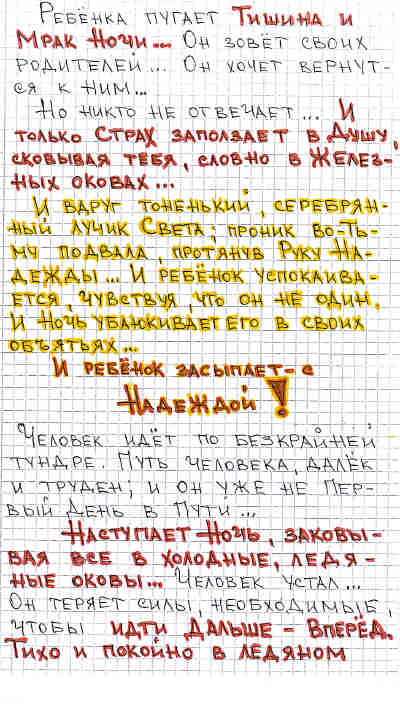 Ребёнка пугает Тишина и
Мрак Ночи... Он зовёт своих
родителей... Он хочет вернут-
ся к ним...
Но никто не отвечает... И
только Страх заползает в Душу,
сковывая тебя, словно в Желез-
ных оковах...
И вдруг тоненький, серебрян-
ный лучик Света; проник во-Ть-
му подвала, протянув Руку На-
дежды... И ребёнок успокаива-
ется, чувствуя, что он не один.
И Ночь убаюкивает его в своих
объятьях...
И ребёнок засыпает-с
Надеждой!
Человек идёт по безкрайней
тундре. Путь человека, далёк
и труден; и он уже не Пер-
вый День в Пути...
Наступает Ночь, заковы-
вая все в холодные, ледя-
ные оковы... Человек устал...
Он теряет силы, необходимые,
чтобы идти дальше - Вперёд.
Тихо и покойно в ледяном